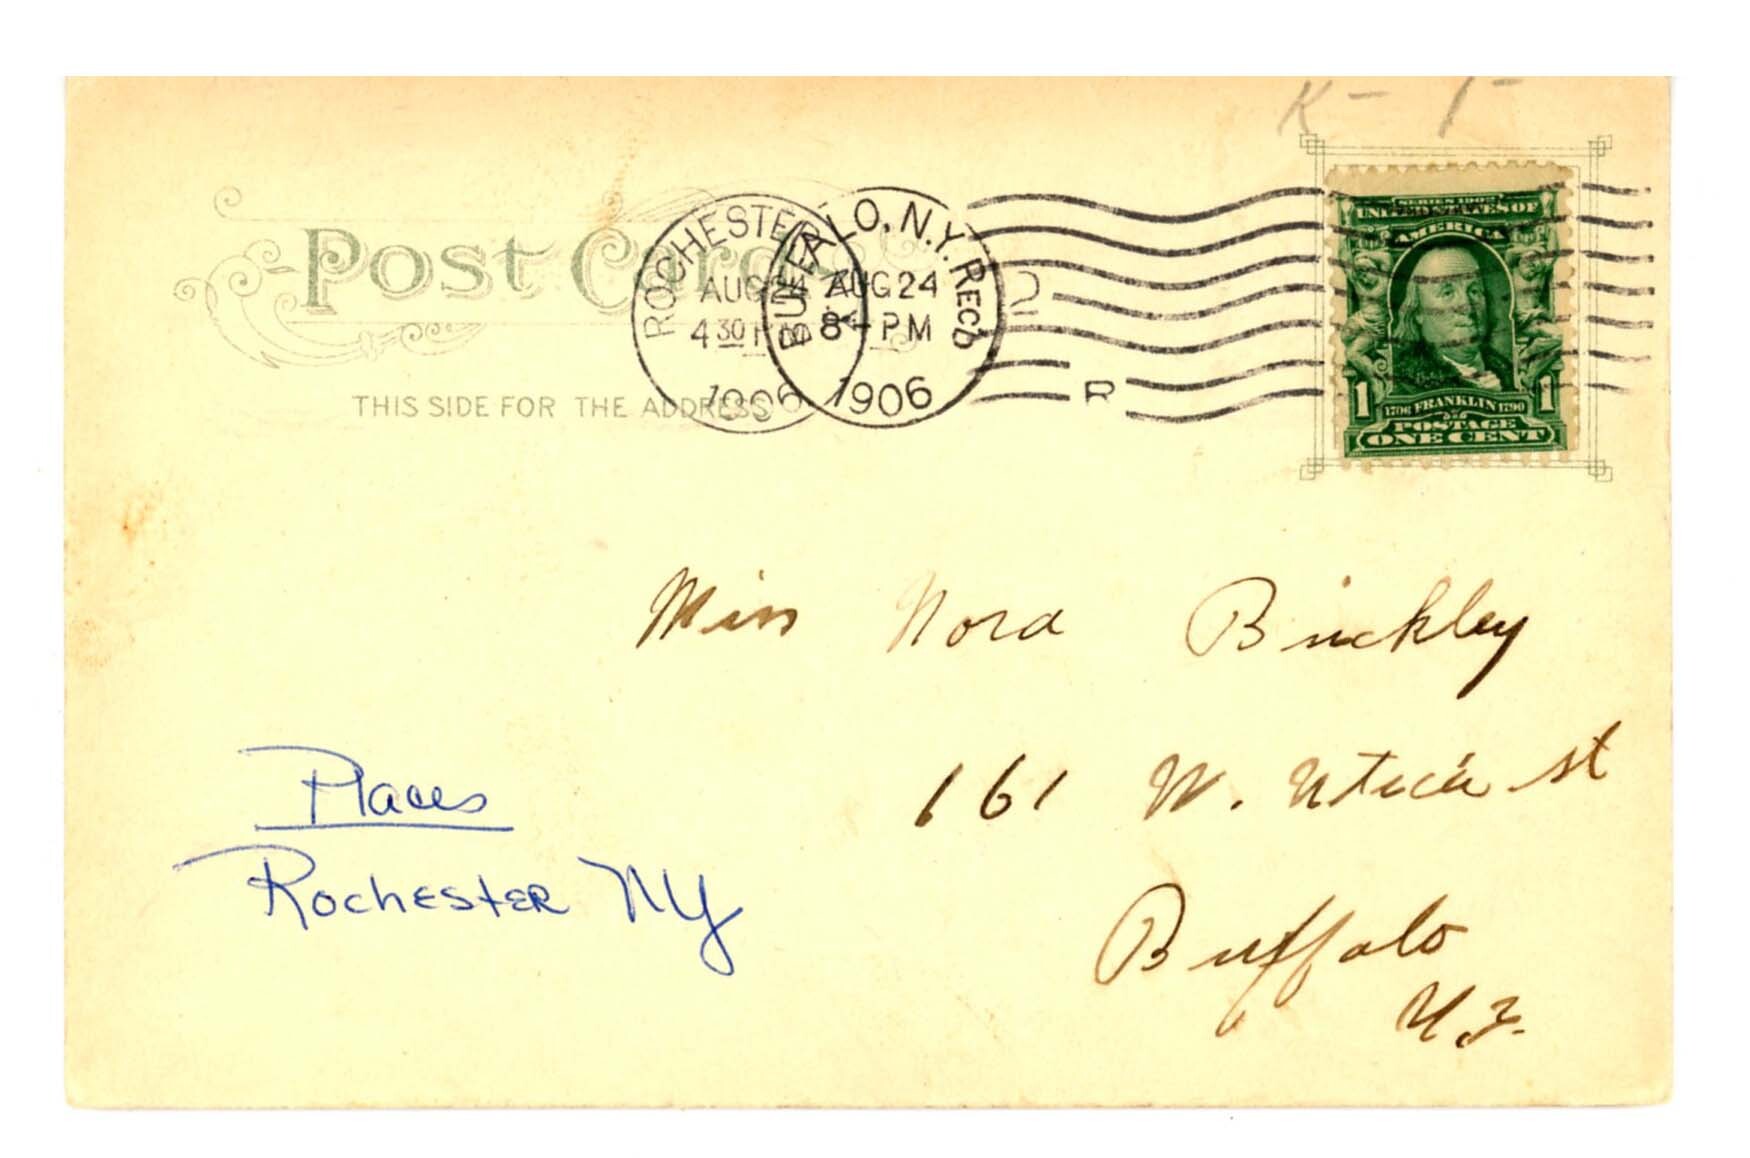 K - 1 -
Post Card
THIS SIDE FOR THE ADDRESS
ROCHESTER
AUG 24
4 30 P
1906
BUFFALO, N.Y. REC'D
AUG 24
8 - PM
1906
R
SERIES 1902
UNITED STATES OF
AMERICA
1 1
1706 FRANKLIN 1790
POSTAGE
ONE CENT
Miss Nora Binkley
161 W. Utica st
Buffalo
N.Y.
Places
Rochester NY